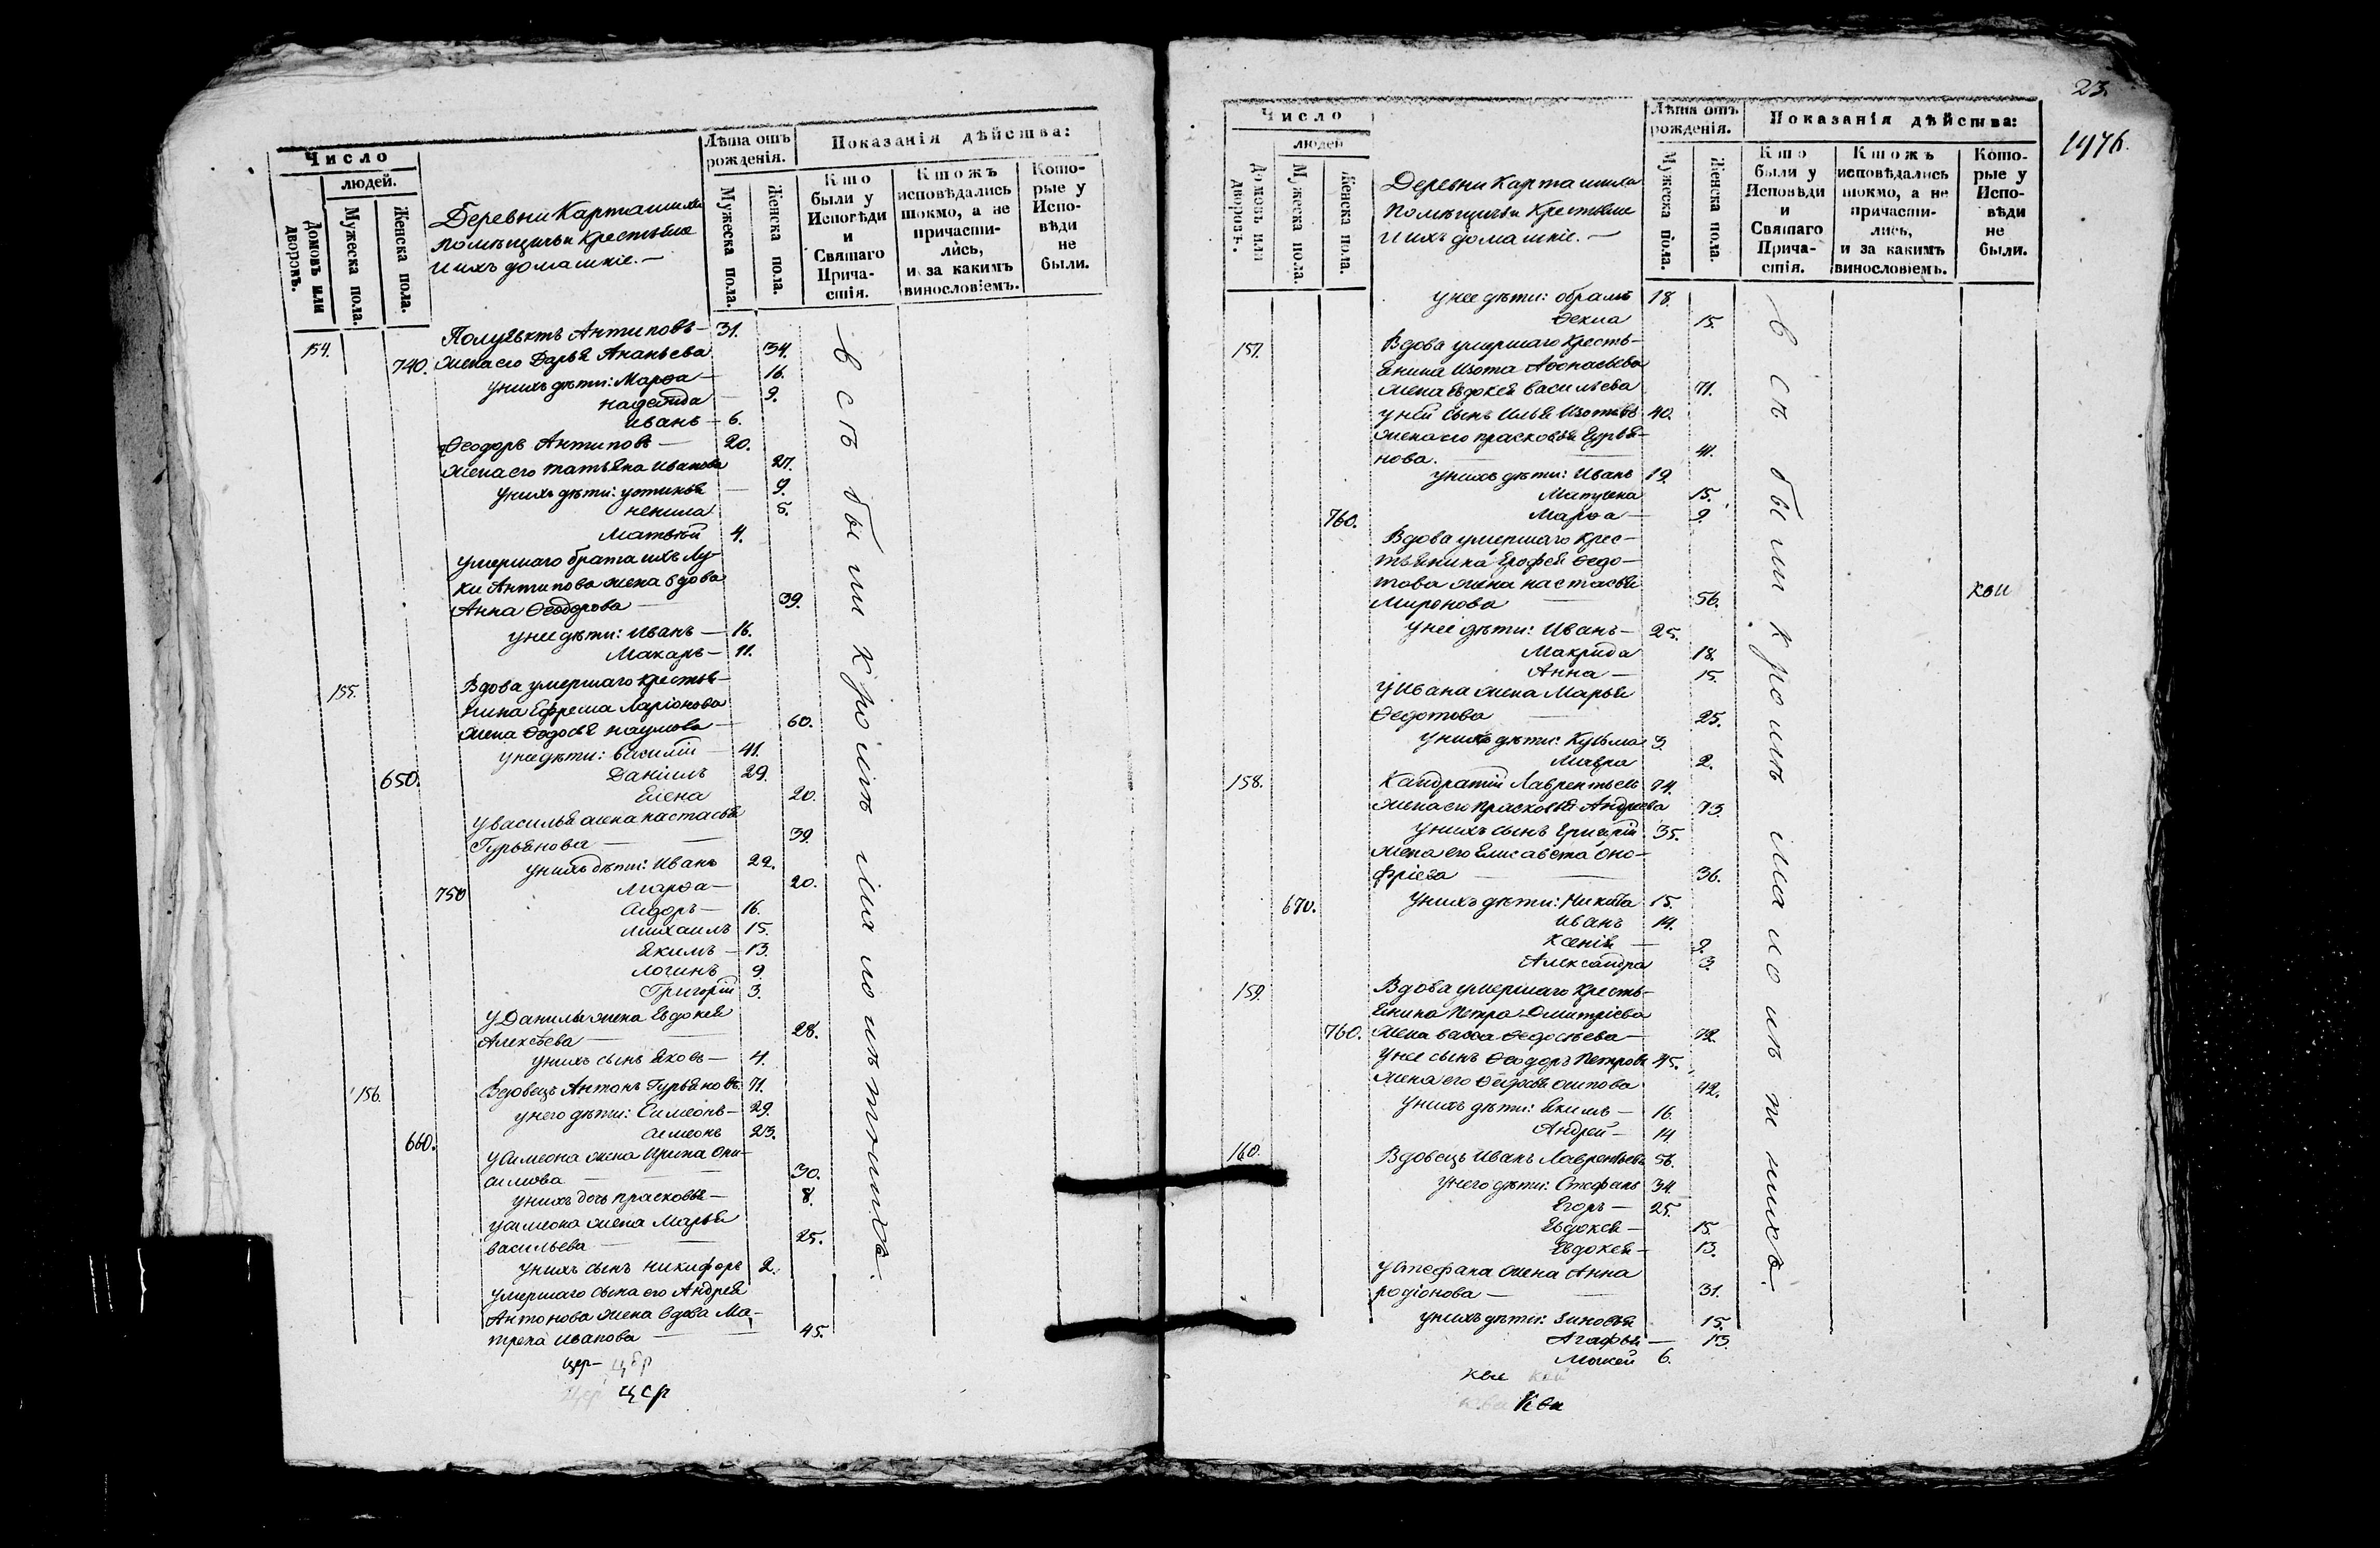 Число
людей.
Домовъ или дворовъ.
Мужеска пола.
Женска пола.
Деревни Карташиха
помѣщичьи Крестьяне
и ихъ домашніе.—
Лѣта отъ рожденія.
Мужеска пола.
Женска пола.
Показанія дѣйства:
Кто были у Исповѣди и Святаго Причастія.
Ктожъ исповѣдались токмо, а не причастились, и за какимъ винословіемъ.
Которые у Исповѣди не были.
Полуевктъ Антиповъ— 31.
154. 740. жена его Дарья Ананьева 34.
у нихъ дѣти: Марѳа— 16.
надежда — 9.
иванъ— 6.
Ѳеодоръ Антиповъ— 20.
жена его татьяна иванова 27.
у нихъ дѣти: устинья — 9.
ненила 5.
Матвѣй 4.
умершаго брата ихъ Лу-
ки Антипова жена вдова
Анна Ѳеодорова— 39.
у нее дѣти: иванъ— 16.
Макаръ— 11.
155. Вдова умершаго крестья-
нина Ефрема Ларіонова
жена Ѳедосья наумова— 60.
у нее дѣти: василій— 41.
650. Даніилъ 29.
Елена 20.
у василья жена настасья
Гурьянова— 39.
у нихъ дѣти: Иванъ 22.
750 Марѳа— 20.
сидоръ— 16.
михаилъ 15.
Якимъ— 13.
логинъ 9.
Григорій 3.
у Данилы жена Евдокея
Алексѣева— 28.
у нихъ сынъ Яковъ— 4.
156. Вдовецъ Антонъ Гурьяновъ. 71.
у него дѣти: Симеонъ— 29.
660. симеонъ 23.
у симеона жена Ирина Они-
симова — 30.
у нихъ дочь прасковья— 8.
у симеона жена Марья
васильева — 25.
у нихъ сынъ никифоръ 2.
умершаго сына его Андрея
Антонова жена вдова Ма-
трена иванова — 45.
всѣ были кромѣ малолѣтнихъ.
23.
1976.
Число
людей
Домовъ или дворовъ.
Мужеска пола.
Женска пола.
Деревни Карташиха
помѣщичьи Крестьяне
и ихъ домашніе.—
Лѣта отъ рожденія.
Мужеска пола.
Женска пола.
Показанія дѣйства:
Кто были у Исповѣди и Святаго Причастія.
Ктожъ исповѣдались токмо, а не причастились, и за какимъ винословіемъ.
Которые у Исповѣди не были.
у нее дѣти: абрамъ 18.
Ѳекла 15.
157. Вдова умершаго кресть-
янина Изота Аѳонасьева
жена Евдокея васильева 71.
у ней сынъ Илья Изотовъ 40.
жена его прасковья Гурья-
нова. — 41.
у нихъ дѣти: Иванъ 19.
15.
760. Марѳа— 9.
Вдова умершаго крес-
тьянина Ерофея Ѳедо-
това жена настасья
Миронова — 56.
у нее дѣти: Иванъ— 25.
Макрида 18.
Анна— 15.
у Ивана жена Марья
Ѳедотова — 25.
у нихъ дѣти: Кузьма 3.
Мавра 2.
158. Кандратій Лаврентьевъ 74.
жена его прасковья Андреева 73.
у нихъ сынъ Григорій 35.
жена его Елисавета Оно-
фріева — 36.
670. у нихъ дѣти: Никита 15.
иванъ 14.
Ксенія — 9.
Александра 3.
159. Вдова умершаго кресть-
янина Петра Дмитріева
760. жена васса Ѳедосѣева— 72.
у нее сынъ Ѳеодоръ Петровъ 45.
жена его Ѳедосья осипова 42.
у нихъ дѣти: Якимъ— 16.
Андрей— 14
160. Вдовецъ Иванъ Лаврентьевъ 56.
у него дѣти: Стефанъ 34.
Егоръ— 25.
Евдокея— 15.
Евдокея— 13.
у Стефана жена Анна
родіонова— 31.
у нихъ дѣти: Зиновья 15.
Агафья— 13.
Мокей 6.
всѣ были кромѣ малолѣтнихъ.